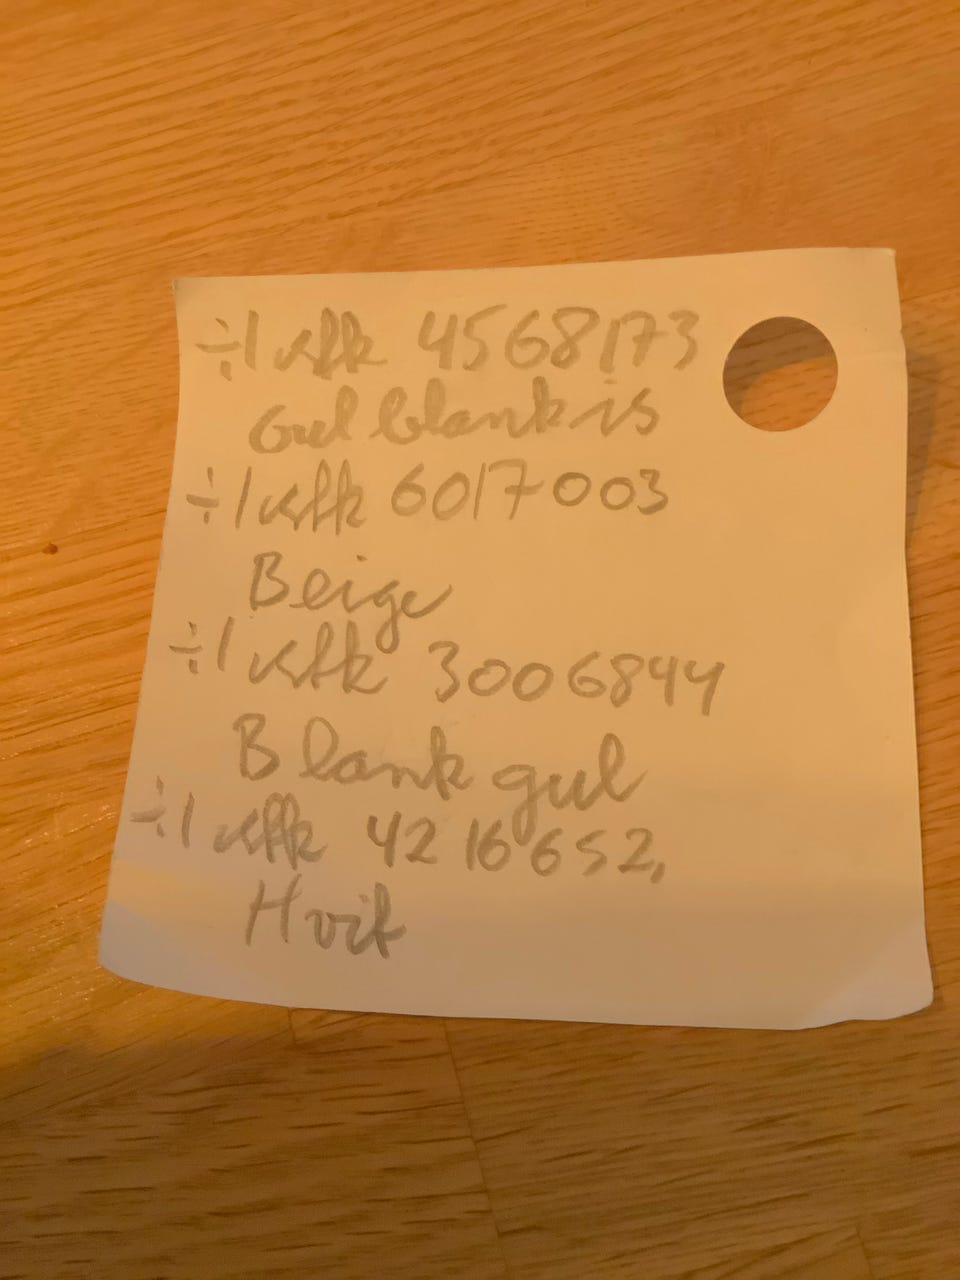 ÷1 stk 4568173
Gul blank is
÷1 stk 6017003
Beige
÷1 stk 3006844
Blank gul
÷1 stk 4216652,
Hvit